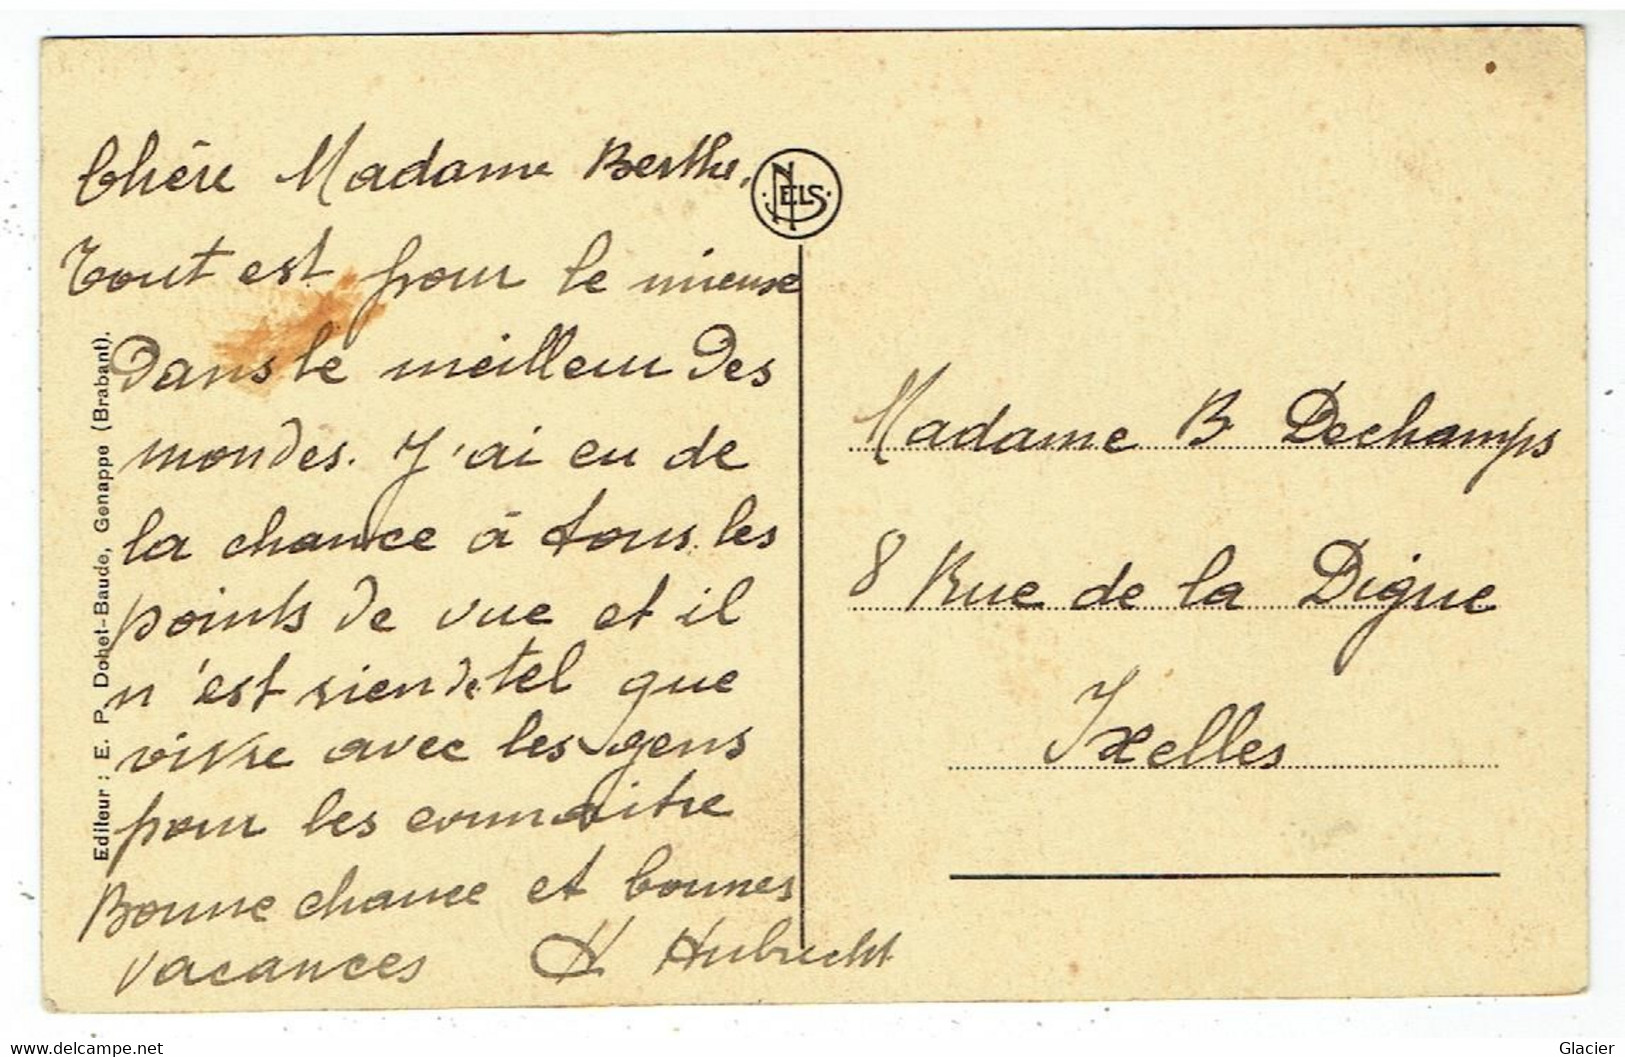 Chère Madame Berthe,
Tout est pour le mieux
Dans le meilleur Des
mondes. J'ai eu de
la chance à tous les
points de vue et il
n'est rien de tel que
vivre avec les gens
pour les connaitre
Bonne chance et bonnes
vacances H Hubrecht
NELS
Editeur : E. P. Dohet-Baude, Genappe (Brabant).
Madame B Dechamps
8 Rue de la Digue
Ixelles
www.delcampe.net
Glacier